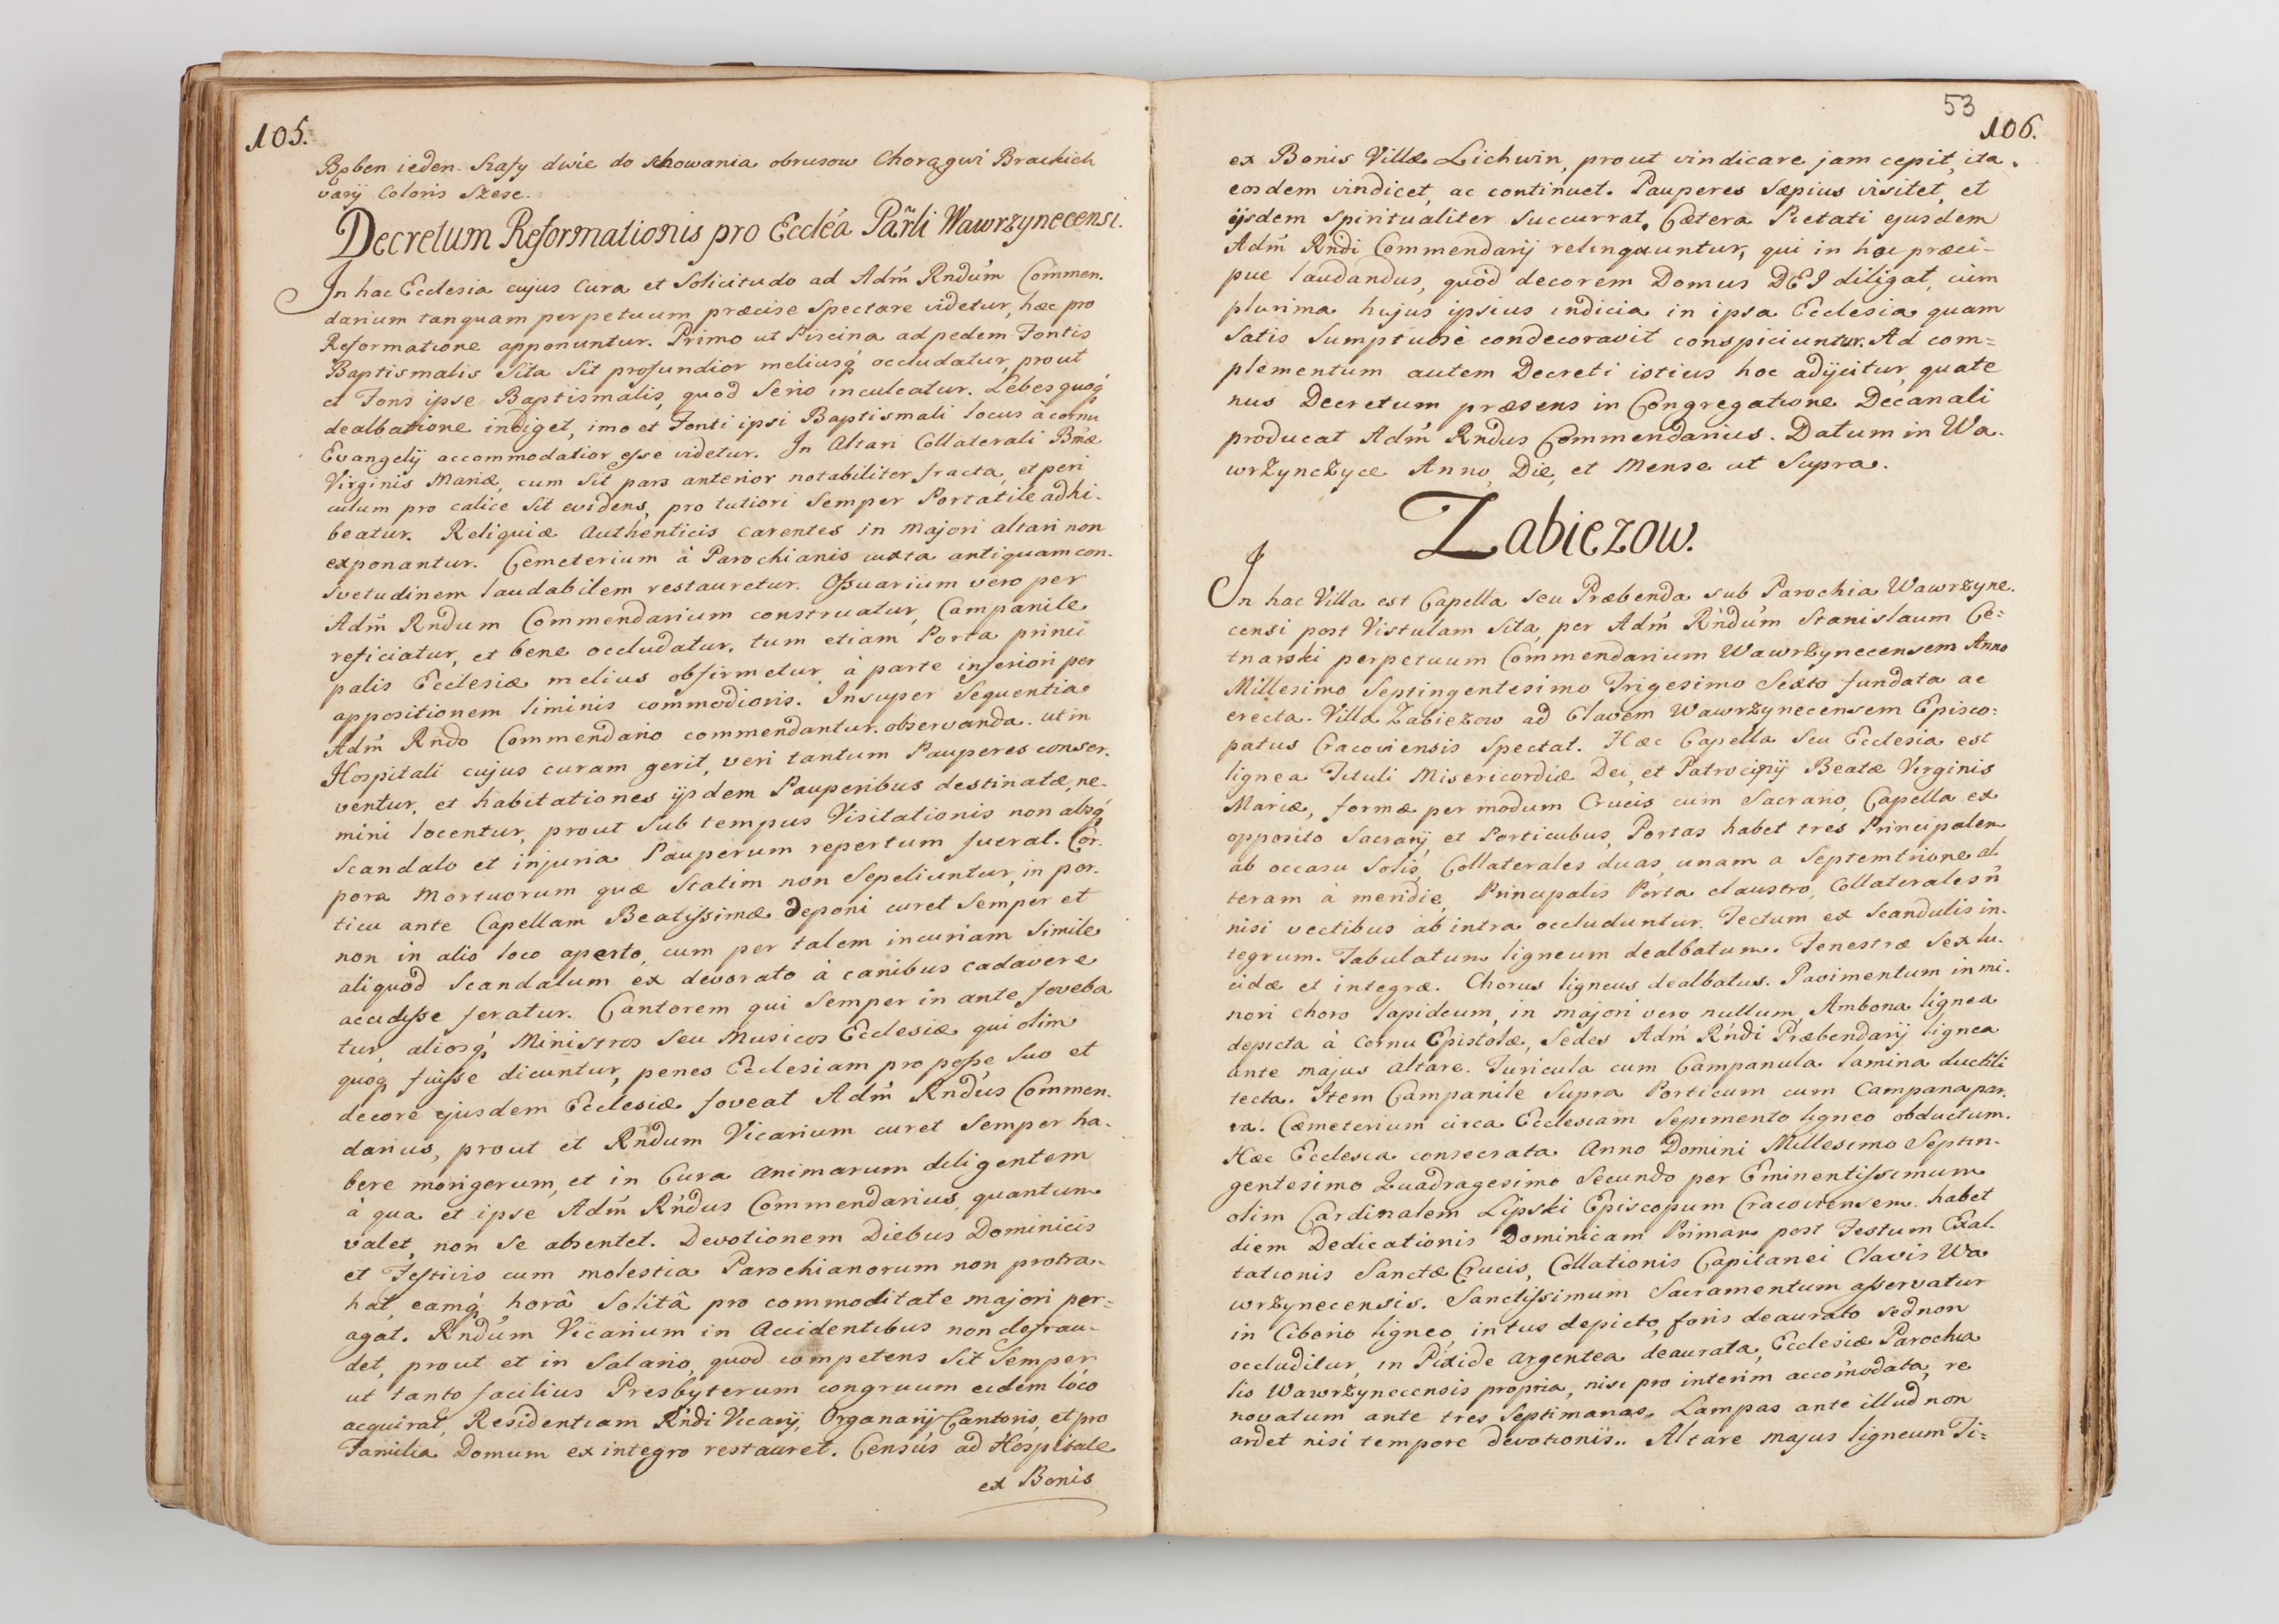 105.
Bęben ieden. Szafy dwie do schowania obrusow Chorągwi Brackich
varij Coloris Szese.
Decretum Reformationis pro Eccl̃a Par̃li Wawrzynecensi.
In hac Ecclesia cujus Cura et Solicitudo ad Adm̃ Rndum̃ Commen.
darium tanquam perpetuum præcise Spectare videtur, hæc pro
Reformatione apponuntur. Primo ut Piscina ad pedem Fontis
Baptismalis Sita Sit profundior meliusq́ occludatur, prout
et Fons ipse Baptismalis, quod Serio inculcatur. Lebes quoq́
dealbatione indiget, imo et Fonti ipsi Baptismali locus à cornu
Evangelij accommodatior esse videtur. In Altari Collaterali Bm̃æ
Virginis Mariæ, cum Sit pars anterior notabiliter fracta, et peri
culum pro calice Sit evidens, pro tutiori Semper Portatile adhi-
beatur. Reliquiæ Authenticis carentes in majori altari non
exponantur. Cemeterium à Parochianis iuxta antiquam con-
svetudinem laudabilem restauretur. Ossuarium vero per
Adm̃ Rndum Commendarium construatur, Campanile
reficiatur, et bene occludatur, tum etiam Porta princi
palis Ecclesiæ melius obfirmetur, à parte inferiori per
appositionem liminis commodioris. Insuper Sequentia
Adm̃ Rndo Commendario commendantur observanda. ut in
Hospitali cujus curam gerit, veri tantum Pauperes conser.
ventur, et habitationes ijsdem Pauperibus destinatæ, ne-
mini locentur, prout Sub tempus Visitationis non absq́
Scandalo et injuria Pauperum repertum fuerat. Cor.
pora Mortuorum quæ Statim non Sepeliuntur, in por.
ticu ante Capellam Beatissimæ deponi curet Semper et
non in alio loco aperto, cum per talem incuriam Simile
aliquod Scandalum ex devorato à canibus cadavere
accidisse feratur. Cantorem qui Semper in ante foveba
tur, aliosq́, Ministros Seu Musicos Ecclesiæ qui olim
quoq́ fuisse dicuntur, penes Ecclesiam pro posse Suo et
decore ejusdem Ecclesiæ foveat Adm̃ Rndus Commen.
darius, prout et Rndum Vicarium curet Semper ha-
bere morigerum, et in Cura Animarum diligentem
à qua et ipse Adm̃ Rndus Commendarius, quantum
valet, non Se absentet. Devotionem Diebus Dominicis
et Festivis cum molestia Parochianorum non protra-
hat, eamq́ horâ Solitâ pro commoditate majori per=
agat. Rndum Vicarium in Accidentibus non defrau-
det, prout et in Salario, quod competens Sit Semper
ut tanto facilius Presbyterum congruum eidem loco
acquirat, Residentiam Rndi Vicarij, Organarij Cantoris, et pro
Familia Domum ex integro restauret. Census ad Hospitale
ex Bonis
53
106.
ex Bonis Villæ Lichwin, prout vindicare jam cepit, ita
eosdem vindicet, ac continuet. Pauperes sæpius visitet, et
ijsdem Spiritualiter Succurrat, Cætera Pietati ejusdem
Adm̃ Rndi Commendarij relinquuntur, qui in hoc præci-
pue laudandus, quòd decorem Domus DEI diligat, cum
plurima hujus ipsius indicia in ipsa Ecclesia quam
Satis Sumptuose condecoravit conspiciuntur. Ad com=
plementum autem Decreti istius hoc adijcitur, quate
nus Decretum præsens in Congregatione Decanali
producat Adm̃ Rndus Commendarius. Datum in Wa-
wrzynczyce Anno, Die, et Mense ut Supra.
Zabiezow.
In hac Villa est Capella seu Præbenda sub Parochia Wawrzyne.
censi post Vistulam Sita, per Adm̃ Rndum Stanislaum Ce=
tnarski perpetuum Commendarium Wawrzynecensem Anno
Millesimo Septingentesimo Trigesimo Sexto fundata ac
erecta. Villa Zabiezow ad Clavem Wawrzynecensem Episco=
patus Cracoviensis Spectat. Hæc Capella Seu Ecclesia est
lignea Tituli Misericordiæ Dei, et Patrocinij Beatæ Virginis
Mariæ, formæ per modum Crucis cum Sacrario, Capella ex
opposito Sacrarij, et Porticubus, Portas habet tres Principalem
ab occasu Solis, Collaterales duas, unam a Septemtrione al
teram à meridie, Principalis Porta claustro, Collaterales ñ
nisi vectibus ab intra occluduntur. Tectum ex Scandulis in-
tegrum. Tabulatum ligneum dealbatum. Fenestræ Sex lu-
cidæ et integræ. Chorus ligneus dealbatus. Pavimentum in mi-
nori choro lapideum, in majori vero nullum, Ambona lignea
depicta à Cornu Epistolæ, Sedes Adm̃ Rndi Præbendarij lignea
ante majus altare. Turicula cum Campanula lamina ductili
tecta. Item Campanile Supra Porticum cum Campana par.
va. Cæmeterium circa Ecclesiam Sepimento ligneo obductum.
Hæc Ecclesia consecrata Anno Domini Millesimo Septin-
gentesimo Quadragesimo Secundo per Eminentissimum
olim Cardinalem Lipski Episcopum Cracoviensem. habet
diem Dedicationis Dominicam Primam post Festum Exal.
tationis Sanctæ Crucis, Collationis Capitanei Clavis Wa
wrzynecensis. Sanctissimum Sacramentum asservatur
in Ciborio ligneo, intus depicto, foris deaurato sed non
occluditur, in Pixide argentea deaurata, Ecclesiæ Parochia
lis Wawrzynecensis propria, nisi pro interim accomodata, re
novatum ante tres Septimanas. Lampas ante illud non
ardet nisi tempore devotionis.. Altare majus ligneum Ti=